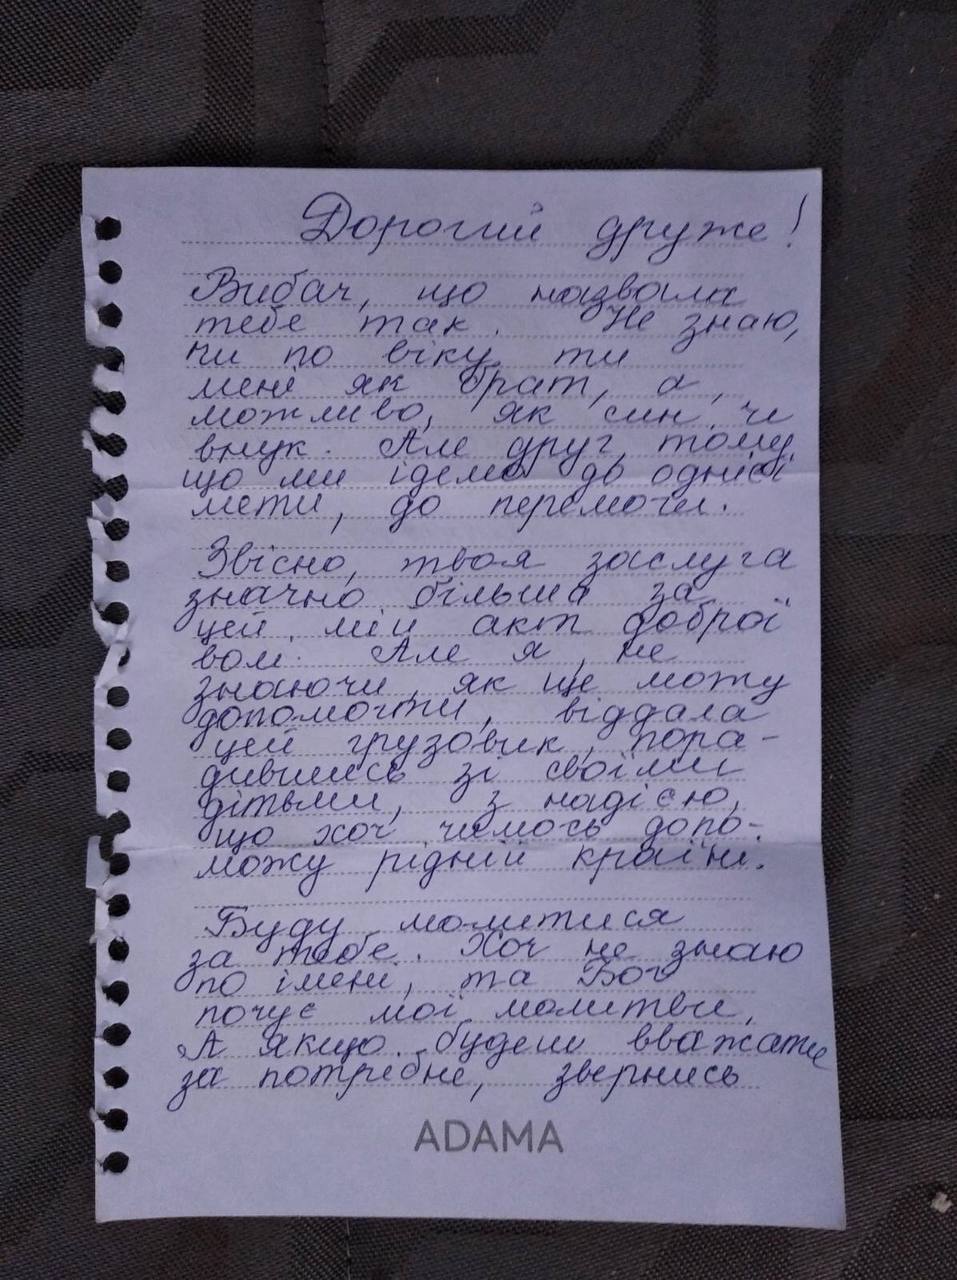 Дорогий друже!
Вибач, що назвала
тебе так. Не знаю,
чи по віку ти
мені як брат, а,
можливо, як син чи
внук. Але друг, тому,
що ми ідемо до однієї
мети, до перемоги.
Звісно, твоя заслуга
значно більша за
цей мій акт доброї
волі. Але я, не
знаючи, як ще можу
допомогти, віддала
цей грузовик, пора-
дившись зі своїми
дітьми, з надією,
що хоч чимось допо-
можу рідній країні.
Буду молитися
за тебе. Хоч не знаю
по імені, та Бог
почує мої молитви.
А якщо будеш вважати
за потрібне, звернись
ADAMA